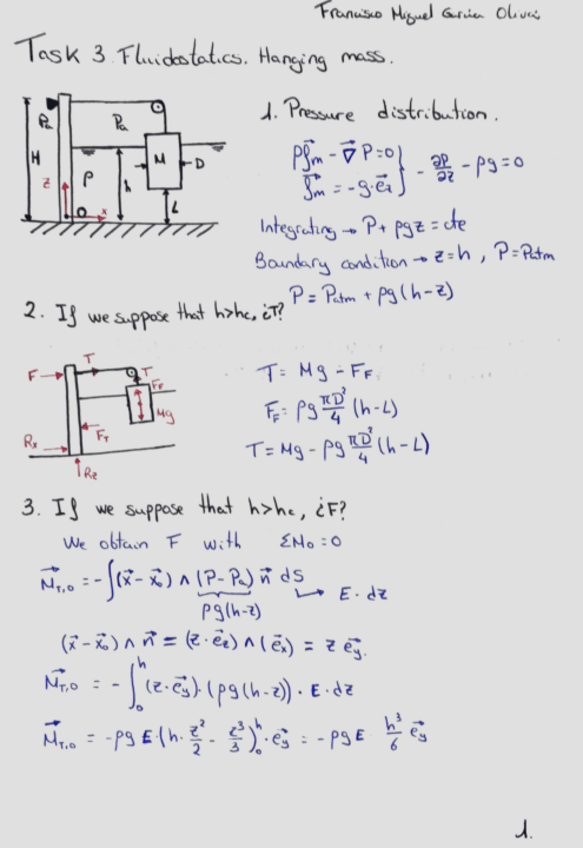 Francisco Miguel Garcia Olivei
Task 3. Fluidostatics. Hanging mass.
Pa Pa M D H ρ h z O x L
1. Pressure distribution.
ρf⃗m - ∇⃗P = 0
f⃗m = -g·e⃗z } - ∂P/∂z - ρg = 0
Integrating → P + ρgz = cte
Boundary condition → z=h, P=Patm
P = Patm + ρg(h-z)
2. If we suppose that h>hc, ¿T?
F T T FF Mg FT Rx Rz
T = Mg - FF
FF = ρg πD²/4 (h-L)
T = Mg - ρg πD²/4 (h-L)
3. If we suppose that h>hc, ¿F?
We obtain F with ΣMo = 0
M⃗T,O = -∫(x⃗ - x⃗o) ∧ (P-Pa) n⃗ ds
ρg(h-z) ↳ E·dz
(x⃗ - x⃗o) ∧ n⃗ = (z·e⃗z) ∧ (e⃗x) = z e⃗y.
M⃗T,O = -∫₀ʰ (z·e⃗y)·(ρg(h-z))·E·dz
M⃗T,O = -ρg E (h·z²/2 - z³/3)₀ʰ·e⃗y = -ρg E h³/6 e⃗y
1.